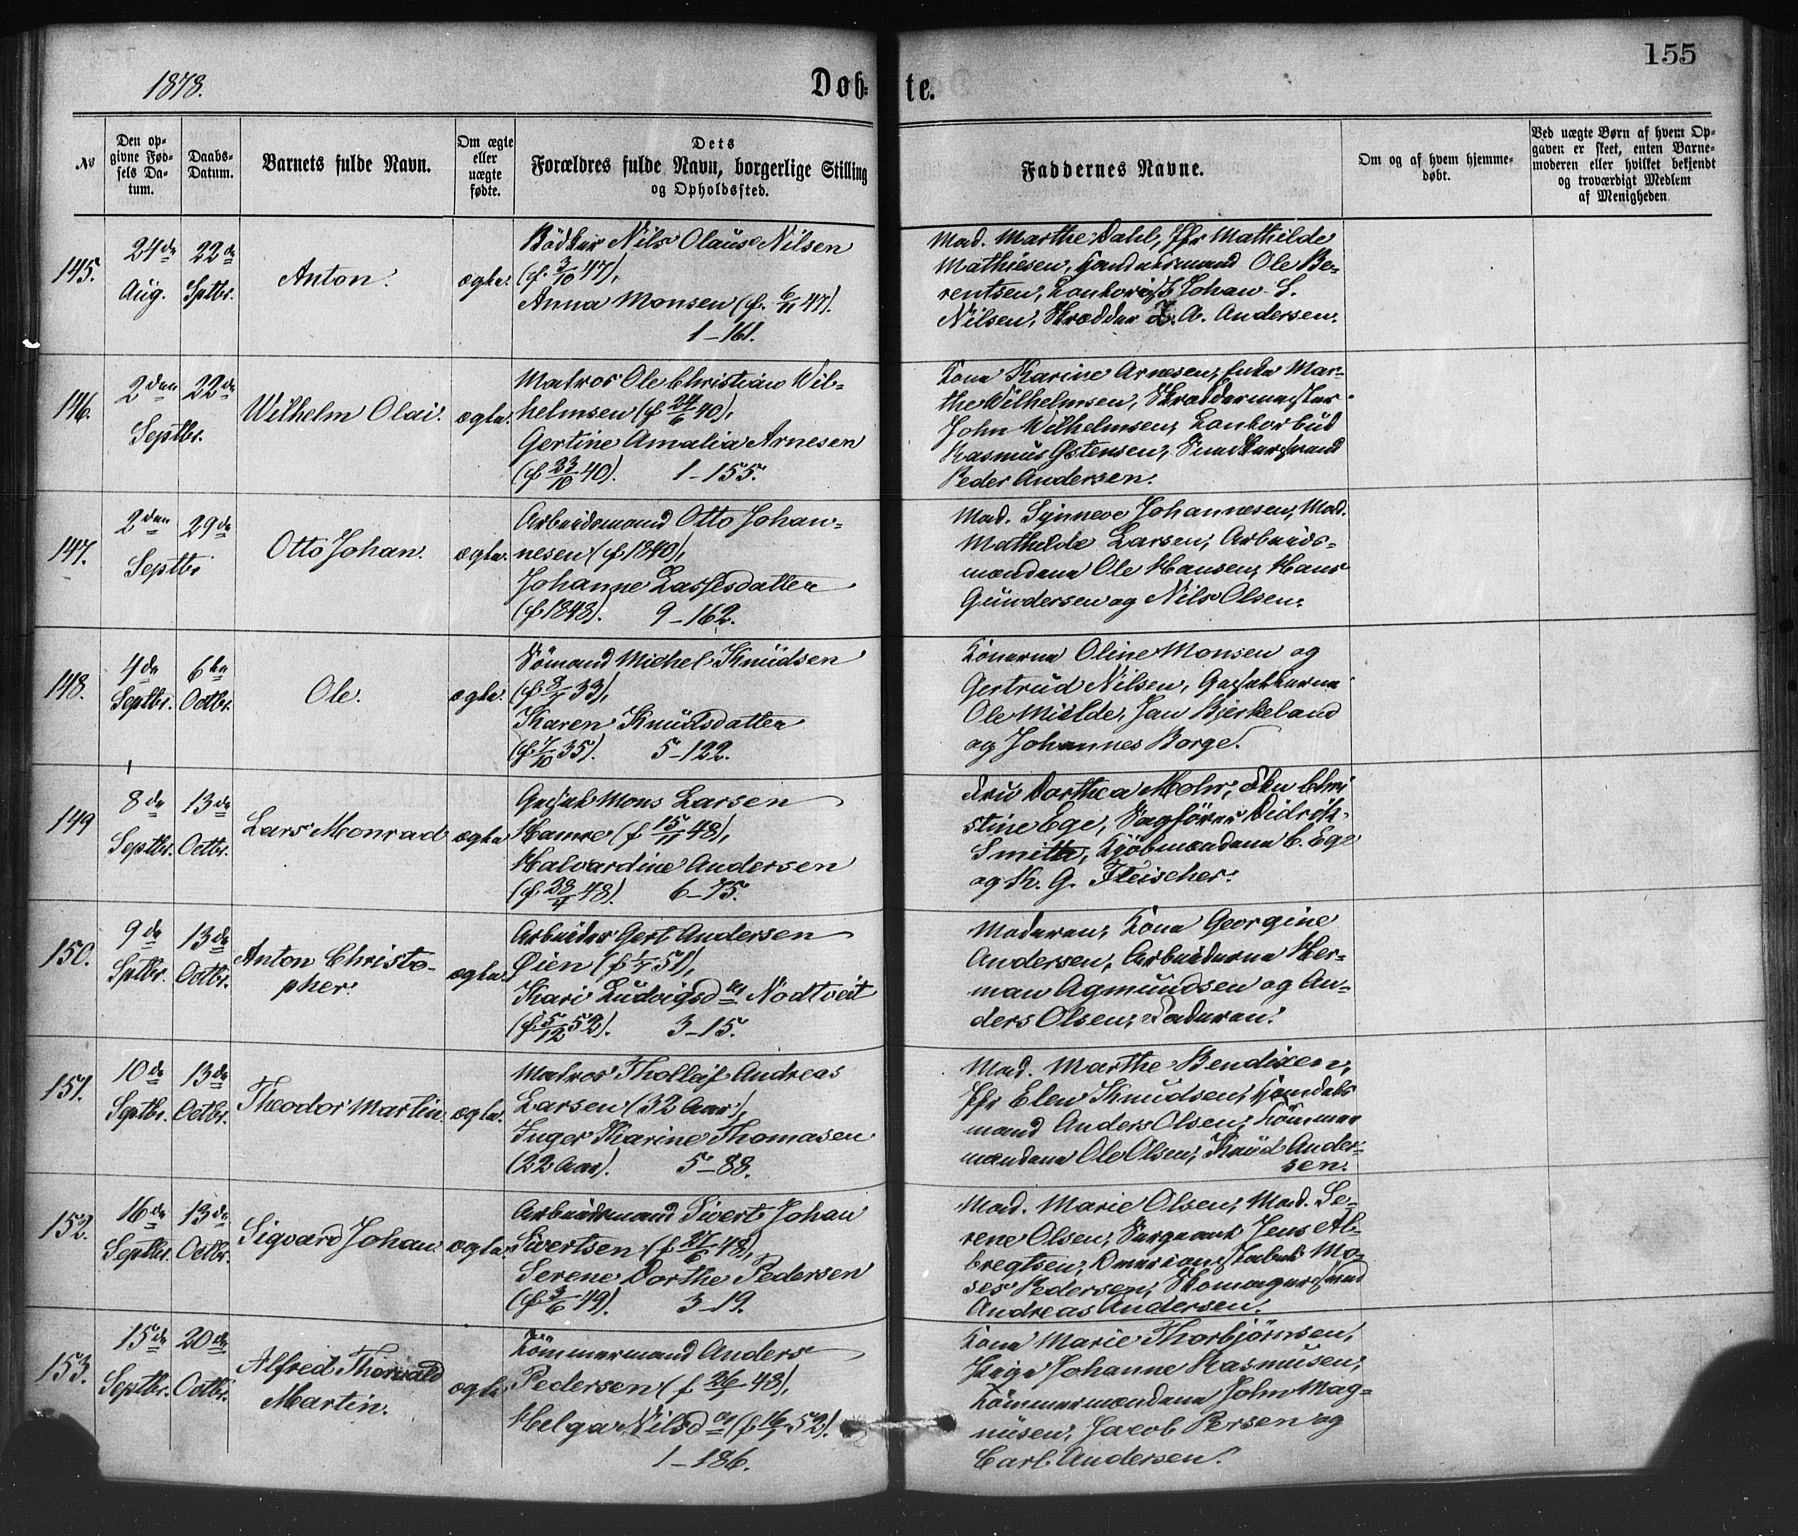 155
1878.
Døb- te.
No
Den op-
givne Fød-
sels Da-
tum.
Daabs-
Datum.
Barnets fulde Navn.
Om ægte
eller
uægte
fødte.
Dets
Forældres fulde Navn, borgerlige Stilling
og Opholdssted.
Faddernes Navne.
Om og af hvem hjemme-
døbt.
Ved uægte Børn af hvem Op-
gaven er skeet, enten Barne-
moderen eller hvilket bekjendt
og troværdigt Medlem
af Menigheden.
145.
24de
Aug.
22de
Sptbr.
Anton.
ægte.
Bödker Nils Olaus Nilsen
(f. 3/10 47),
Anna Monsen (f. 6/11 47).
1-161.
Mad. Marthe Dahl, Jfr Mathilde
Mathiesen, Handelsmand Ole Be-
rentsen, Johan L.
Nilsen, Skrædder A. Andersen.
146.
2den
Septbr.
22de
Wilhelm Olai.
ægte.
Matros Ole Christian Wil-
helmsen (f 24/6 40),
Gertine Amalia Arnesen
(f 23/10 40). 1-155.
Kone Karine Arnesen, Enke Mar-
the Wilhelmsen, Skræddermester
John Wilhelmsen, Kontorbud
Rasmus Østensen, Snedkersvend
Peder Andersen.
147.
2den
Septbr
29de
Otto Johan.
ægte.
Arbeidsmand Otto Johan-
nesen (f 1840),
Johanne Lassesdatter
(f 1848). 9-162.
Mad. Synneve Johannesen, Mad.
Mathilde Larsen, Arbeids-
mændene Ole Hansen, Hans
Gundersen og Nils Olsen.
148.
4de
Septbr.
6te
Octbr.
Ole.
ægte.
Sömand Michel Knudsen
33),
Karen Knudsdatter
(f. 7/10 35). 5-122.
Konerne Oline Monsen og
Gertrud Nilsen, Gaselkerne
Ole Mielde, Jan Bjerkeland
og Johannes Borge.
149
8de
Septbr.
13de
Octbr.
Lars Monrad
ægte
Mons Larsen
Hamre (f 15/11 48),
Halvardine Andersen
(f. 28/4 48). 6-75.
Fru Dorthea Mohr, Chri
stine Ege, Sagförer Didrik
Smith, Kjöbmændene C. Ege
og K. G. Fleischer.
150.
9de
Sptbr.
13de
Octbr.
Anton Christo-
pher.
ægte.
Arbeider Gert Andersen
Øien 51),
Kari Ludvigsdtr Nodtveit
(f. 5/12 52). 3-15.
Moderen, Kone Georgine
Andersen, Arbeiderne Her-
man Agmundsen og An-
ders Olsen, Faderen.
151.
10de
Septbr.
13de
Octbr.
Theodor Martin.
ægte.
Matros Thollef Andreas
Larsen (32 Aar),
Inger Karine Thomasen
(22 Aar). 5-88.
Mad. Marthe Bendixen,
Jfr Elen Knudsen, Handels
mand Anders Olsen, Tömmer
mændene Ole Olsen, Knud Ander-
sen.
152.
16de
Septbr.
13de
Octbr.
Sigvard Johan.
ægte.
Arbeidsmand Sivert Johan
Sivertsen (f 27/6 48),
Serene Dorthe Pedersen
(f 3/6 49). 3-19.
Mad. Marie Olsen, Mad. Se-
rene Olsen, Sergeant Jens Al-
bregtsen, Mo-
ses Pedersen, Skomagersvend
Andreas Andersen.
153.
15de
Septbr.
20de
Octbr.
Alfred Thorvald
Martin.
ægte
Tömmermand Anders
Pedersen (f 48),
Helga Nilsdtr 52).
1-186.
Kone Marie Thorbjörnsen,
Pige Johanne Rasmusen,
Tömmermændene John Mag-
nusen, Jacob Persen og
Carl Andersen.